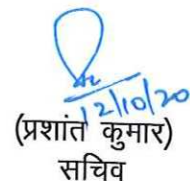 12/10/20
(प्रशांत कुमार)
सचिव